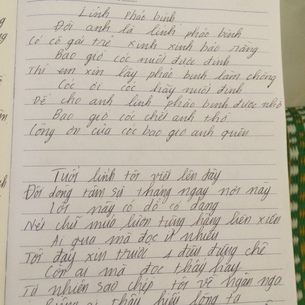 Lính pháo binh
Đời anh là lính pháo binh
Có cô gái trẻ xinh xinh bảo rằng
Bao giờ cóc nuốt được đình
Thì em xin lấy pháo binh làm chồng
Cóc ơi cóc hãy nuốt đình
Để cho anh lính pháo binh được nhờ
Bao giờ cóc chết anh thờ
Công ơn của cóc bao giờ anh quên
Tuổi lính tôi viết lên đây
Đôi dòng tâm sự tháng ngày nơi này
Lời này có đó có đang
Nét chữ mưa luôn từng hàng liên xiên
Ai qua mà đọc ít nhiều
Tôi đây xin trước 1 điều đừng chê
Còn ai mà đọc thấy hay
Tự nhiên sao chép tôi về ngăn nga